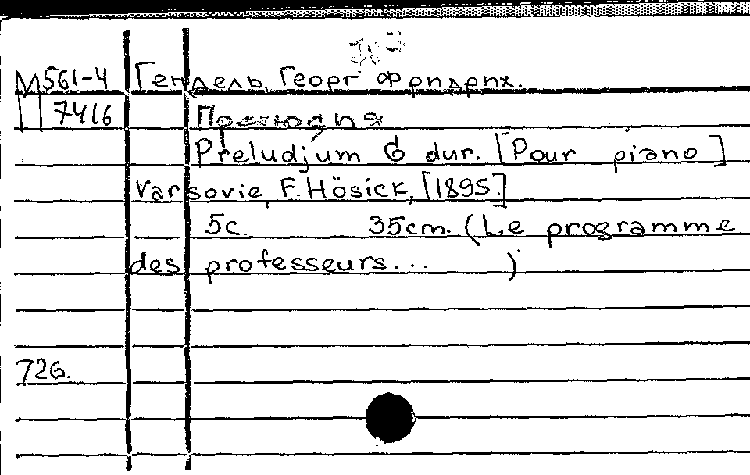 М561-4 Гендель, Георг Фридрих.
7416 Прелюдия
Preludjum G dur. [Pour piano]
Varsovie, F. Hösick, [1895.]
5с. 35cm. (Le programme
des professeurs... )
726.